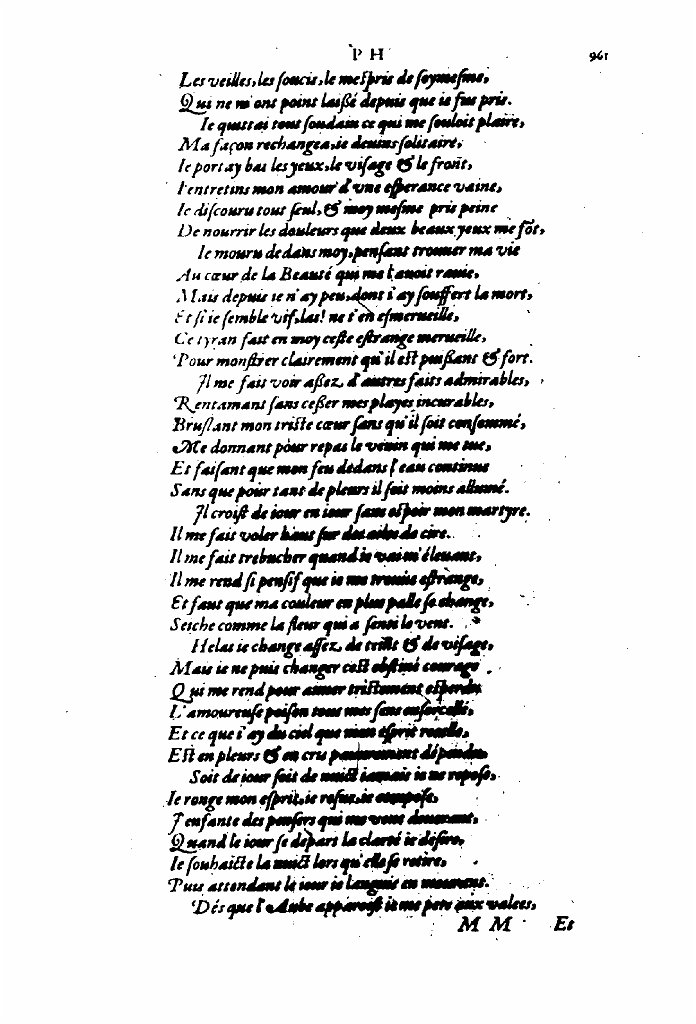 P H 961
Les veilles, les ſoucis, le meſpris de ſoymeſme,
Qui ne m'ont point laißé depuis que ie fus pris.
Ie quittai tout ſoudain ce qui me ſouloit plaire,
Ma façon rechangea, ie deuins ſolitaire,
Ie portay bas les yeux, le viſage & le front,
I'entretins mon amour d'vne eſperance vaine,
Ie diſcouru tout ſeul, & moy meſme pris peine
De nourrir les douleurs que deux beaux yeux me fõt,
Ie mouru dedans moy, penſant trouuer ma vie
Au cœur de la Beauté qui me l'auoit rauie,
Mais depuis ie n'ay peu, dont i'ay ſouffert la mort,
Et ſi ie ſemble vif, las! ne t'en eſmerueille,
Ce tyran fait en moy ceſte eſtrange merueille,
Pour monſtrer clairement qu'il eſt puißant & fort.
Il me fait voir aßez d'autres faits admirables,
Rentamant ſans ceßer mes playes incurables,
Bruſlant mon triſte cœur ſans qu'il ſoit conſommé,
Me donnant pour repas le venin qui me tue,
Et faiſant que mon feu dedans l'eau continue
Sans que pour tant de pleurs il ſoit moins allumé.
Il croiſt de iour en iour ſans eſpoir mon martyre.
Il me fait voler haut ſur des ailes de cire.
Il me fait trebucher quand ie vai m'éleuant,
Il me rend ſi penſif que ie me trouue eſtrange,
Et faut que ma couleur en plus palle ſe change,
Seiche comme la fleur qui a ſenti le vent.
Helas ie change aſſez de teint & de viſage,
Mais ie ne puis changer ceſt obſtiné courage
Qui me rend pour aimer triſtement eſperdu,
L'amoureuſe poiſon tous mes ſens enſorcelle,
Et ce que i'ay du ciel que mon eſprit recelle,
Eſt en pleurs & en cris pauurement dépendu.
Soit de iour ſoit de nuict iamais ie ne repoſe,
Ie ronge mon eſprit, ie reſue, ie compoſe,
I'enfante des penſers qui me vont deuorant,
Quand le iour ſe depart la clarté ie deſire,
Ie ſouhaicte la nuict lors qu'elle ſe retire,
Puis attendant le iour ie languis en mourant.
Dés que l'Aube apparoiſt ie me pers aux valees,
M M Et